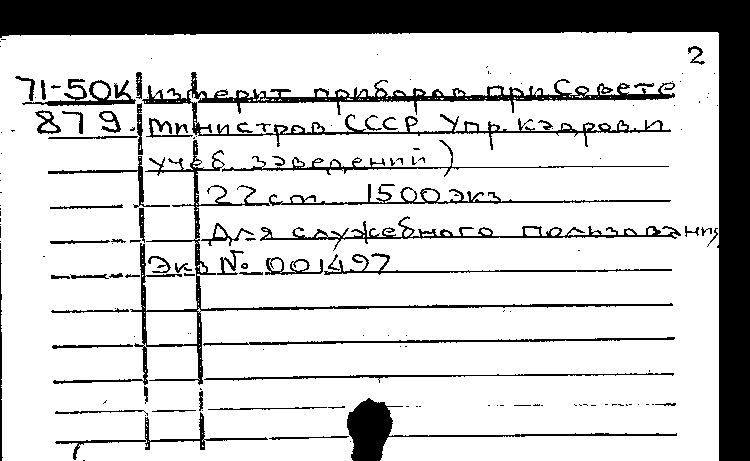 2
71-50К измерит приборов при Совете
879. министров СССР Упр. кадров и
учеб. заведений)
22 cm. 1500 экз.
Для служебного пользования,
Экз № 001497